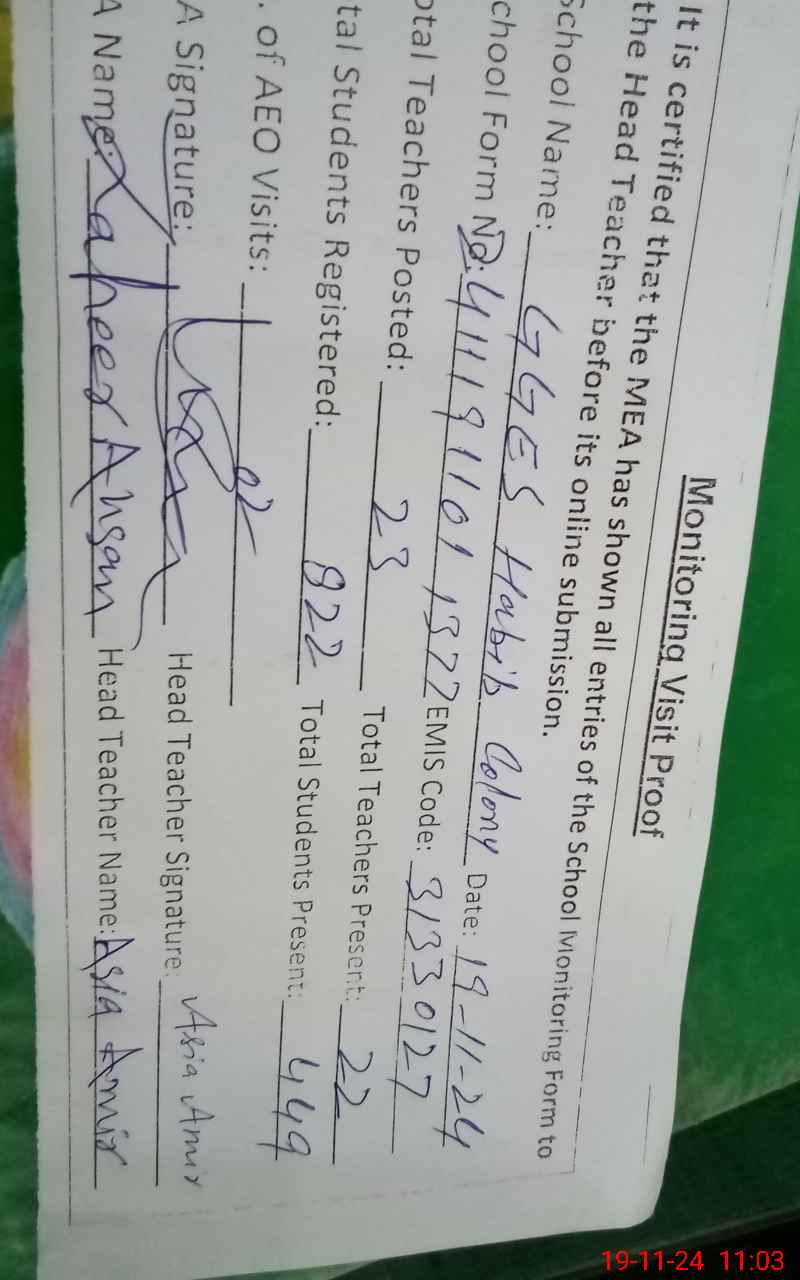 Monitoring Visit Proof
It is certified that the MEA has shown all entries of the School Monitoring Form to
the Head Teacher before its online submission.
School Name: GGES Habib Colony Date: 19-11-24
chool Form No: 411191101 1322 EMIS Code: 31330127
otal Teachers Posted: 23 Total Teachers Present: 22
tal Students Registered: 822 Total Students Present: 449
. of AEO Visits: 02
A Signature: Head Teacher Signature: Asia Amir
A Name: Zaheer Ahsan Head Teacher Name: Asia Amir
19-11-24 11:03